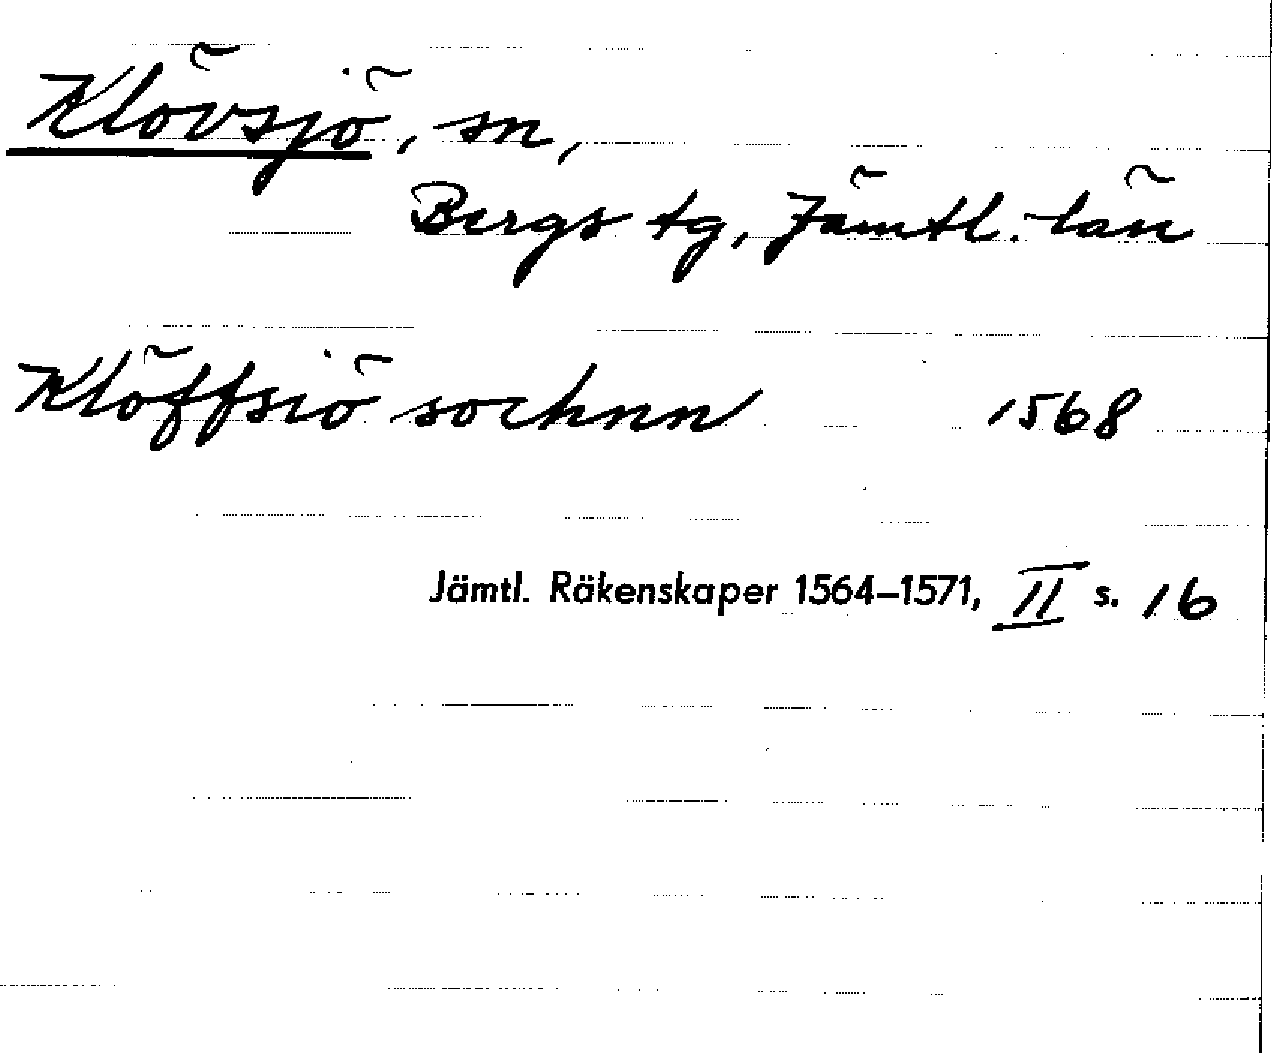 Klövsjö, sn,
Bergs tg, Jämtl. län
Klöffsiö sochnn 1568
Jämtl. Räkenskaper 1564–1571, II s. 16